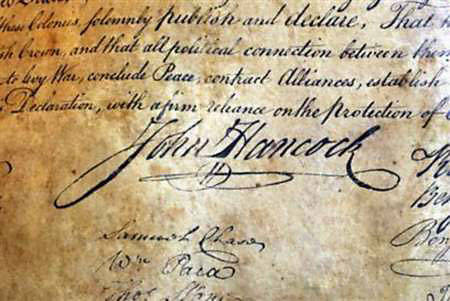 these Colonies, solemnly publish and declare, That
Crown, and that all political connection between them
to levy War, conclude Peace, contract Alliances, establish
Declaration, with a firm reliance on the Protection of
John Hancock
Samuel Chase
Wm Paca
Thos Stone